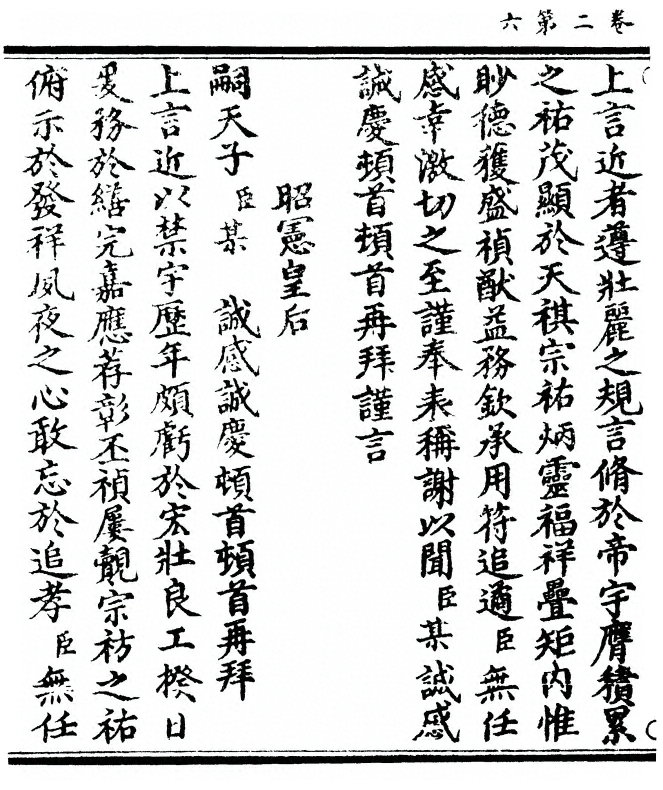 卷二第六
上言近者遵壯麗之規言脩於帝宇膺積累
之祐茂顯於天祺宗祐炳靈福祥疊矩内惟
眇德獲盛禎猷益務欽承用符追遹臣無任
感幸激切之至謹奉表稱謝以聞臣某誠感
誠慶頓首頓首再拜謹言
昭憲皇后
嗣天子臣某 誠感誠慶頓首頓首再拜
上言近以禁宇歷年頗虧於宏壯良工揆日
爰務於繕完嘉應荐彰丕禎屢覿宗祊之祐
俯示於發祥夙夜之心敢忘於追孝臣無任